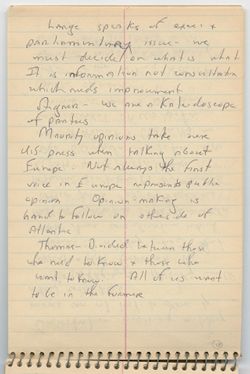 Lange speaks of exec +
parliamentary issue - we
must decide on what is what
It is information not consultation
which needs improvement
- we are a Kaleidoscope
of parties
Minority opinions take over
U.S. press when talking about
Europe. Not always the first
voice in Europe represents public
opinion Opinion-making is
hard to follow on other side of
Atlantic
Thomas - Divided between those
who need to know + those who
want to know. All of us want
to be in the former